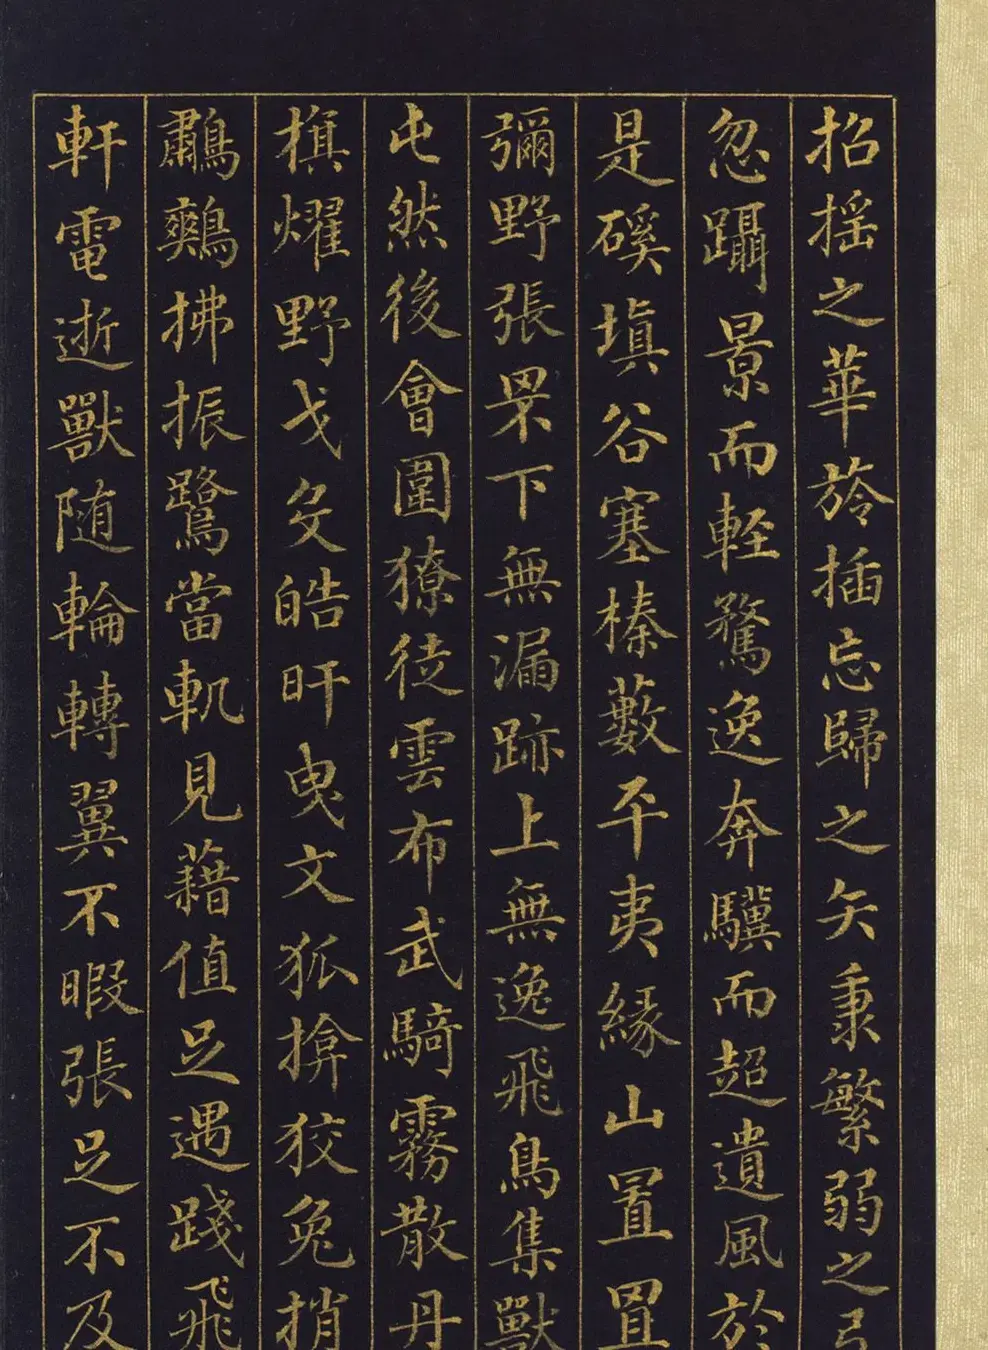 招揺之華旍插忘歸之矢秉繁弱之弓
忽躡景而軽騖逸奔驥而超遺風於
是磎填谷塞榛藪平夷緣山置罝
彌野張罘下無漏跡上無逸飛鳥集獸
屯然後會圍獠徒雲布武騎霧散丹
旗燿野戈殳皓旰曳文狐揜狡兔捎
鷫鷞拂振鷺當軌見藉值足遇踐飛
軒電逝獸随輪轉翼不暇張足不及